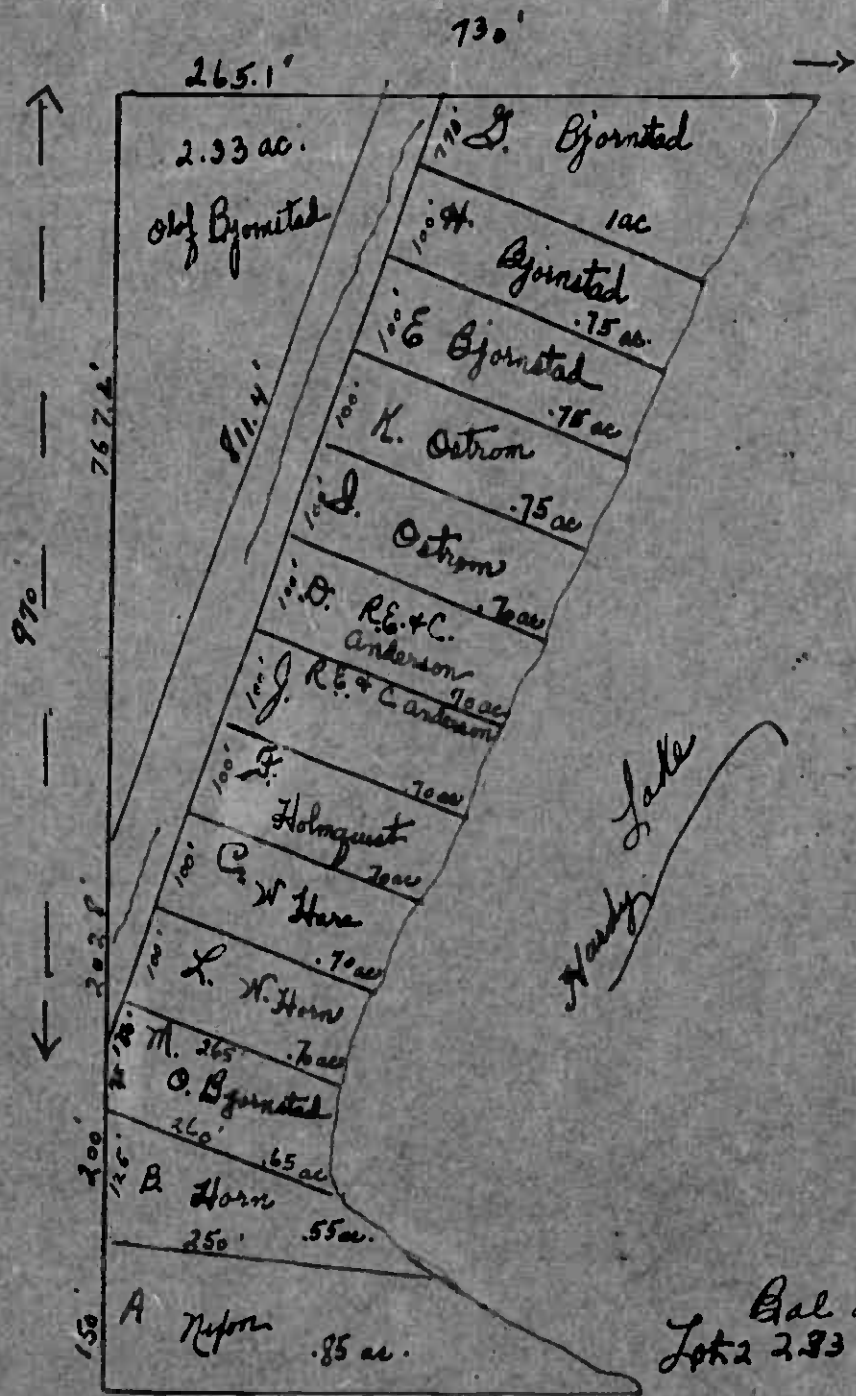 730'
265.1'
2.33 ac.
Olof Bjornstad
767.2'
811.4'
970'
202.8'
G. Bjornstad
1 ac
100' H.
Bjornstad
.75 ac.
100' E Bjornstad
.75 ac
100' K. Ostrom
.75 ac
100' I.
Ostrom
.70 ac
100' D. R.E. & C.
Anderson
.70 ac
100' J. R.E. & C Anderson
.70 ac
100' F.
Holmquist
.70 ac
100' C
W Hare
.70 ac
100' L. W. Horn
.70 ac
M. 265'
O. Bjornstad
260' .65 ac
200'
125' B Horn
250' .55 ac.
150' A
.85 ac.
Hardy Lake
Bal
Lot 2 2.83